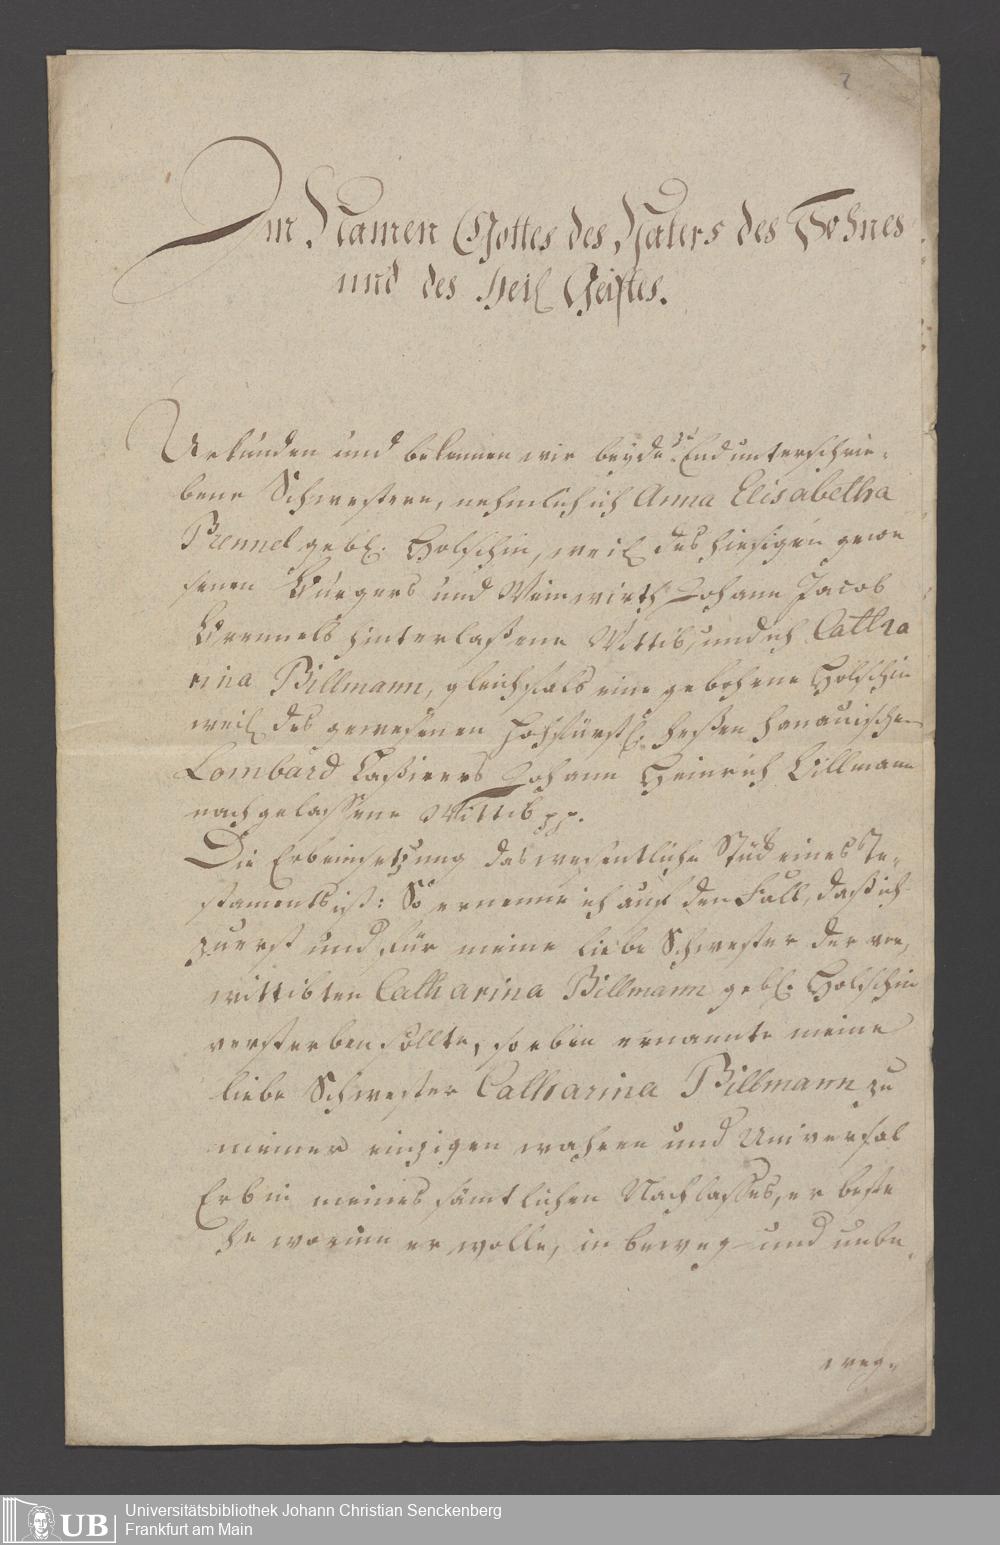 7
Im Namen Gottes des Vaters des Sohnes
und des Heil Geistes.
Urkunden und bekennen wir beyde zu End unterschrie-
bene Schwestern, nehmlich ich Anna Elisabetha
Prennel gebl. Holschin, weil des hiesigen gewe
senen Burgers und Weinwirth Johann Jacob
Brennels hinterlaßene Wittib, und ich Catha
rina Billmann, gleichfals eine gebohrne Holschin
weil des gewesenen Hochfürstl. Heßen Hanauischen
Lombard Caßierers Johann Heinrich Billmann
nachgelassene Wittib pp.
Die Erbeinsetzung das wesentliche Stück eines Te-
staments ist: So ernenne ich auf den Fall, daß ich
zuerst und für meine liebe Schwester der ver-
wittibten Catharina Billmann gebl. Holschin
versterben sollte, so eben ernannte meine
liebe Schwester Catharina Billmann zu
meiner einzigen wahren und Universal
Erbin meines sämtlichen Nachlasses, er beste
he worinn er wolle, in beweg- und unbe-
weg-
UB
Universitätsbibliothek Johann Christian Senckenberg
Frankfurt am Main